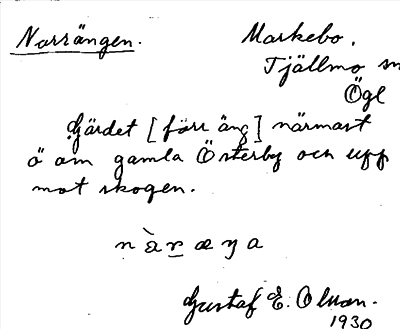 Norrängen. Markebo.
Tjällmo sn
Ögl
Gärdet [förr äng] närmast
ö om gamla Österby och upp
mot skogen.
nàṟæŋa
Gustaf E. Olson.
1930